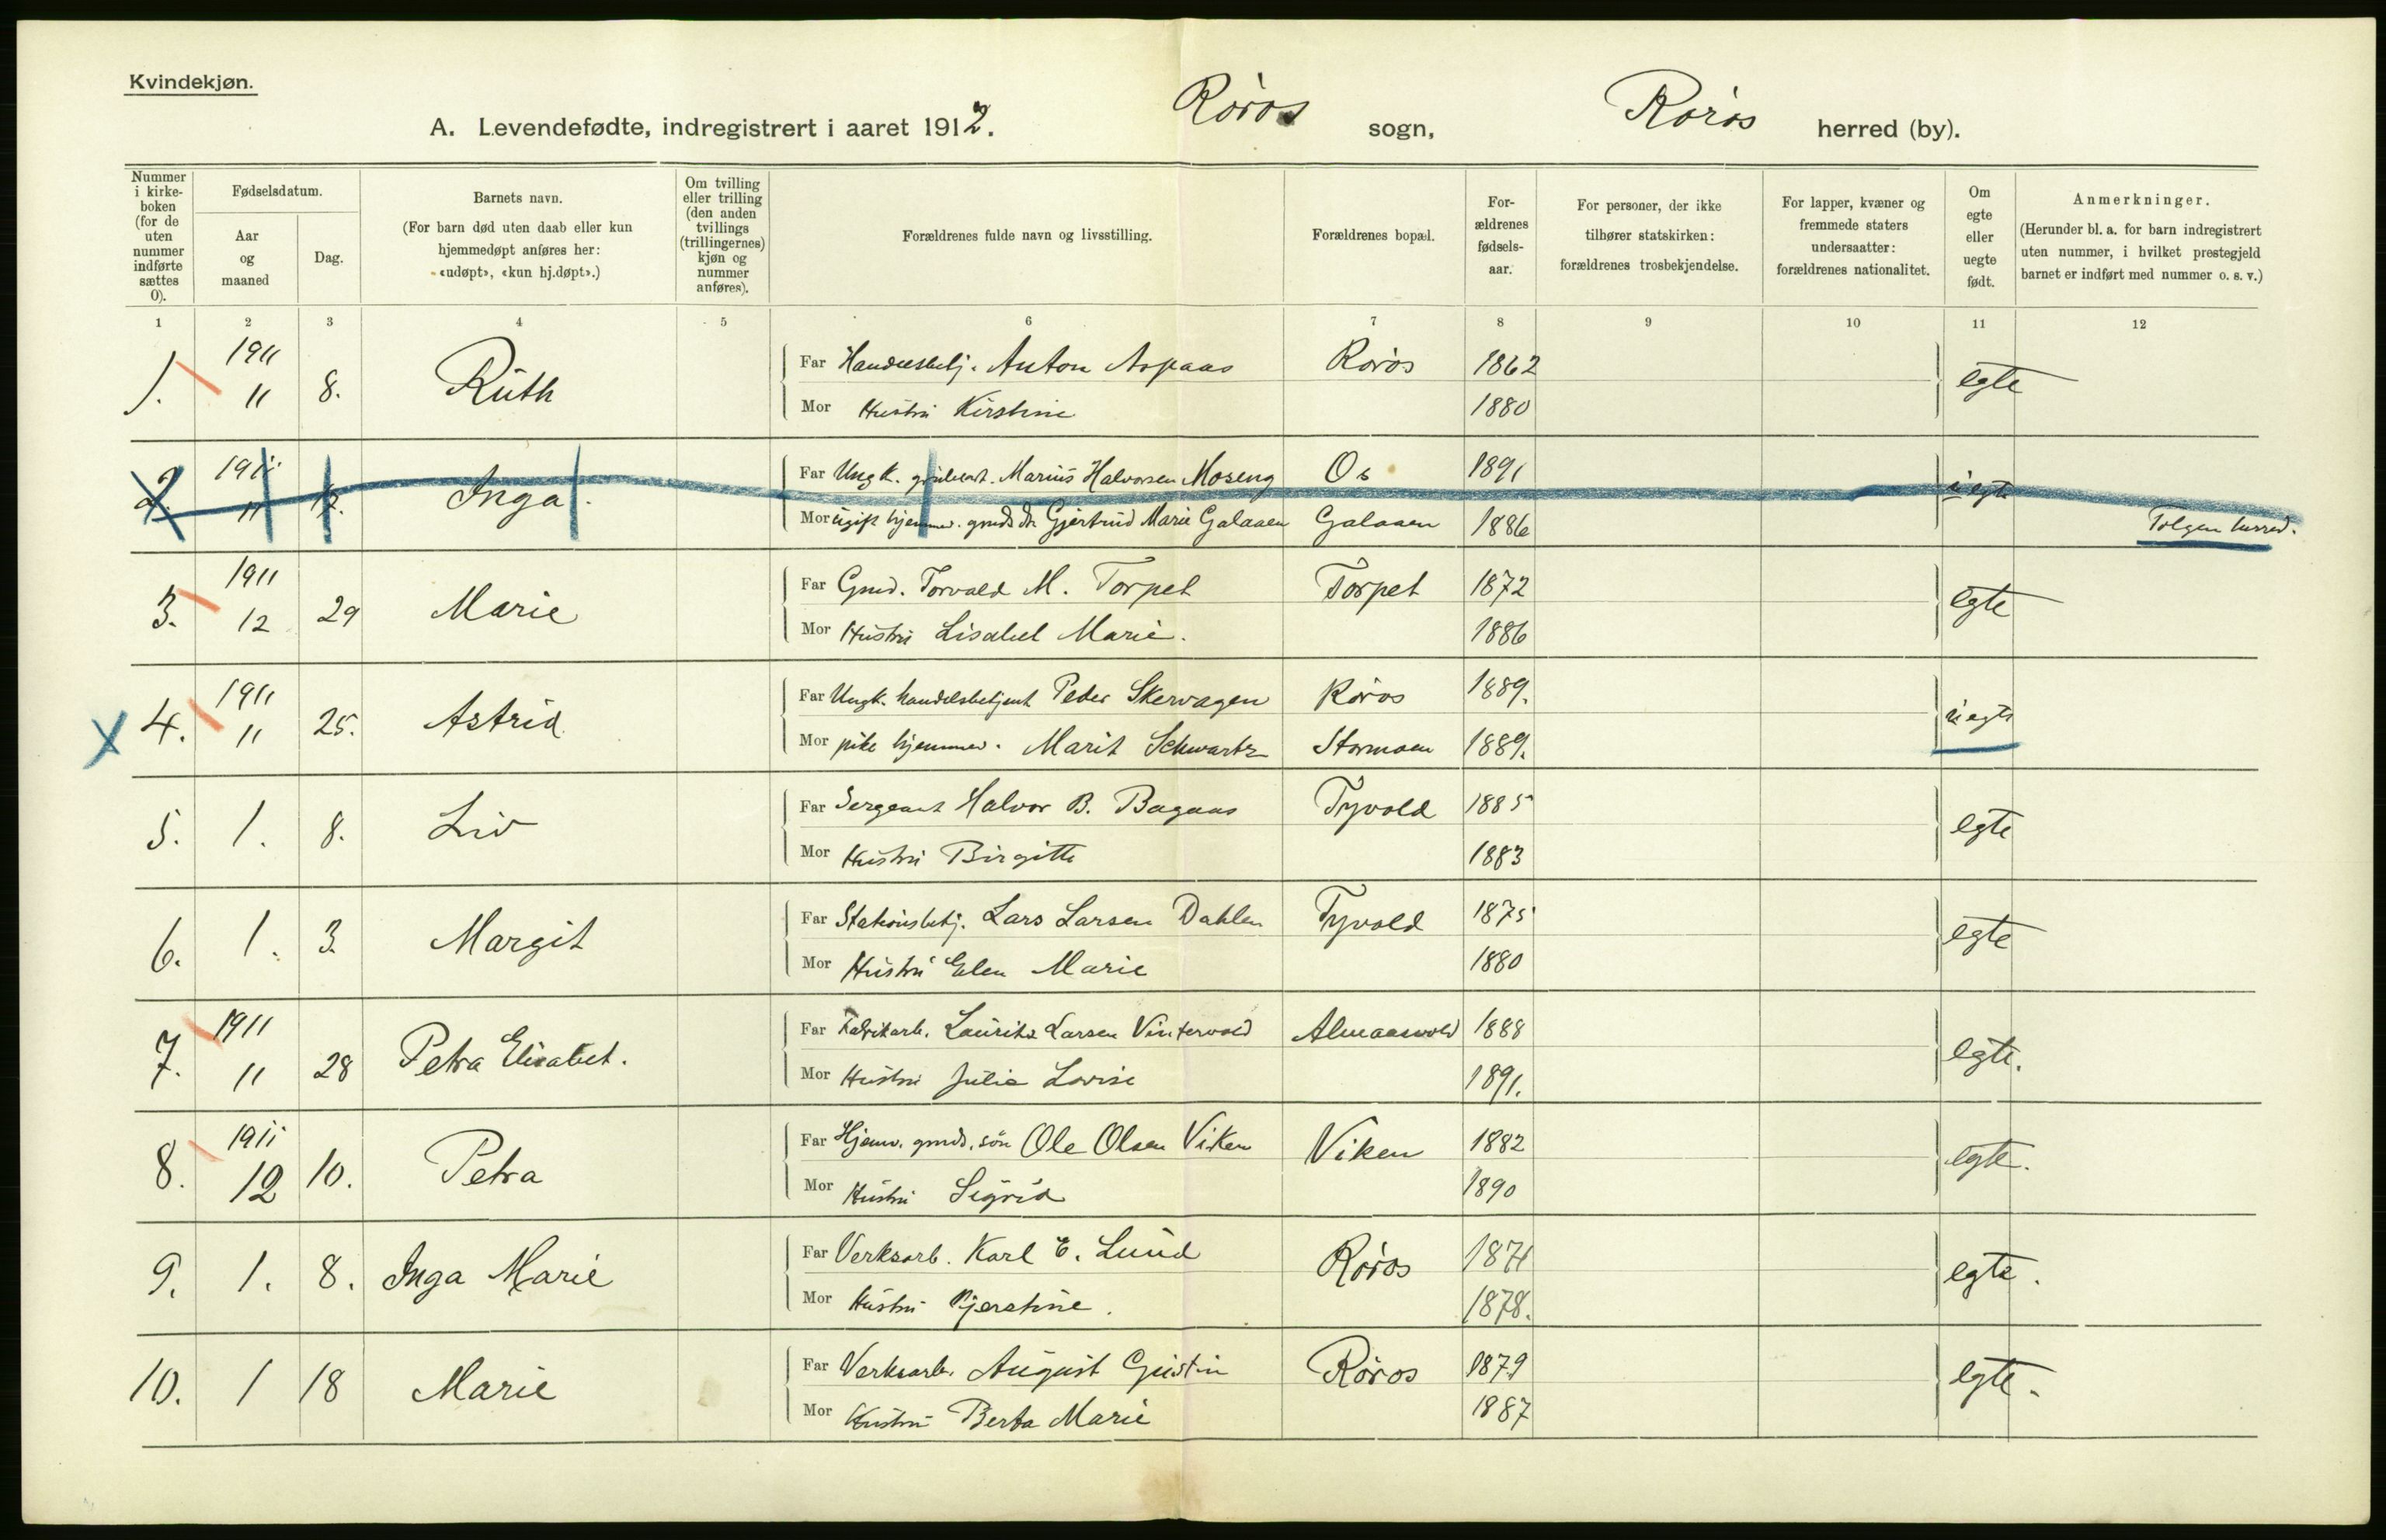 Kvindekjøn.
A. Levendefødte, indregistrert i aaret 1912. Røros sogn, Røros herred (by).
Nummer i kirke-boken (for de uten nummer indførte sættes 0).
Fødselsdatum.
Aar og maaned
Dag.
Barnets navn.
(For barn død uten daab eller kun hjemmedøpt anføres her: «udøpt», «kun hj.døpt».)
Om tvilling eller trilling (den anden tvillings (trillingernes) kjøn og nummer anføres).
Forældrenes fulde navn og livsstilling.
Forældrenes bopæl.
For-ældrenes fødsels-aar.
For personer, der ikke tilhører statskirken: forældrenes trosbekjendelse.
For lapper, kvæner og fremmede staters undersaatter: forældrenes nationalitet.
Om egte eller uegte født.
Anmerkninger.
(Herunder bl. a. for barn indregistrert uten nummer, i hvilket prestegjeld barnet er indført med nummer o. s. v.)
1 2 3 4 5 6 7 8 9 10 11 12
1. 1911 11 8. Ruth
Far Handelsbetj. Anton Aspaas Røros 1862 egte
Mor Hustru Kirstine 1880
2. 1911 11 Inga.
Far Ungk. Marius Halvorsen Moseng Os 1891 uegte
Mor ugift hjemmev. gmds dr. Gjertrud Marie Galaaen Galaaen 1886 Tolgen herred.
3. 1911 12 29 Marie
Far Gmd. Torvald M. Torpet Torpet 1872 egte
Mor Hustru Lisabet Marie. 1886
X 4. 1911 11 25. Astrid
Far Ungk. handelsbetjent Peder Skervagen Røros 1889. uegte
Mor pike hjemmev. Marit Schwartz Stormoen 1889.
5. 1. 8. Liv
Far Sergeant Halvor B. Bagaas Tyvold 1885 egte
Mor Hustru Birgitte 1883
6. 1. 3. Margit
Far Stationsbetj. Lars Larsen Dahlen Tyvold 1875 egte
Mor Hustru Elen Marie 1880
7. 1911 11 28 Petra Elisabet.
Far Fabrikarb. Laurits Larsen Vintervold Almaasvold 1888 egte.
Mor Hustru Julie Lovise 1891.
8. 1911 12 10. Petra
Far Hjemv. gmds. søn Ole Olsen Viken Viken 1882 egte.
Mor Hustru Sigrid 1890
9. 1. 8. Inga Marie
Far Verksarb. Karl E. Lund Røros 1871 egte.
Mor Hustru Kjerstine. 1878.
10. 1 18 Marie
Far Verksarb. August Gustin Røros 1879 egte.
Mor Hustru Berta Marie 1887